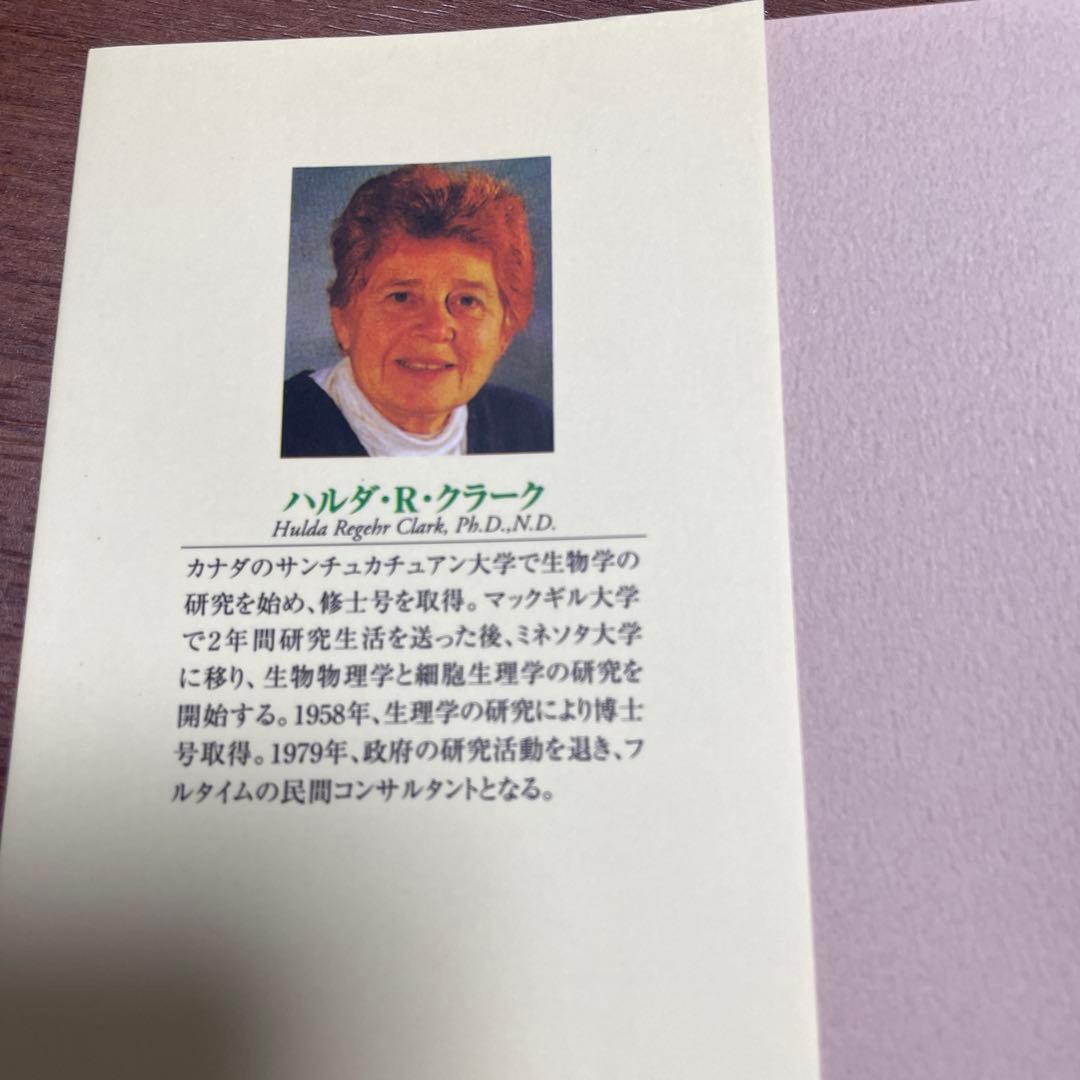 ハルダ・R・クラーク
Hulda Regehr Clark, Ph.D.,N.D.
カナダのサンチュカチュアン大学で生物学の
研究を始め、修士号を取得。マックギル大学
で2年間研究生活を送った後、ミネソタ大学
に移り、生物物理学と細胞生理学の研究を
開始する。1958年、生理学の研究により博士
号取得。1979年、政府の研究活動を退き、フ
ルタイムの民間コンサルタントとなる。